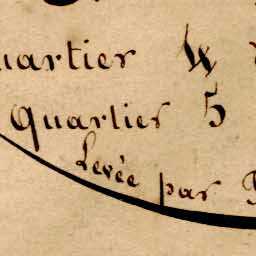 uartier W
Quartier 5
Levée par